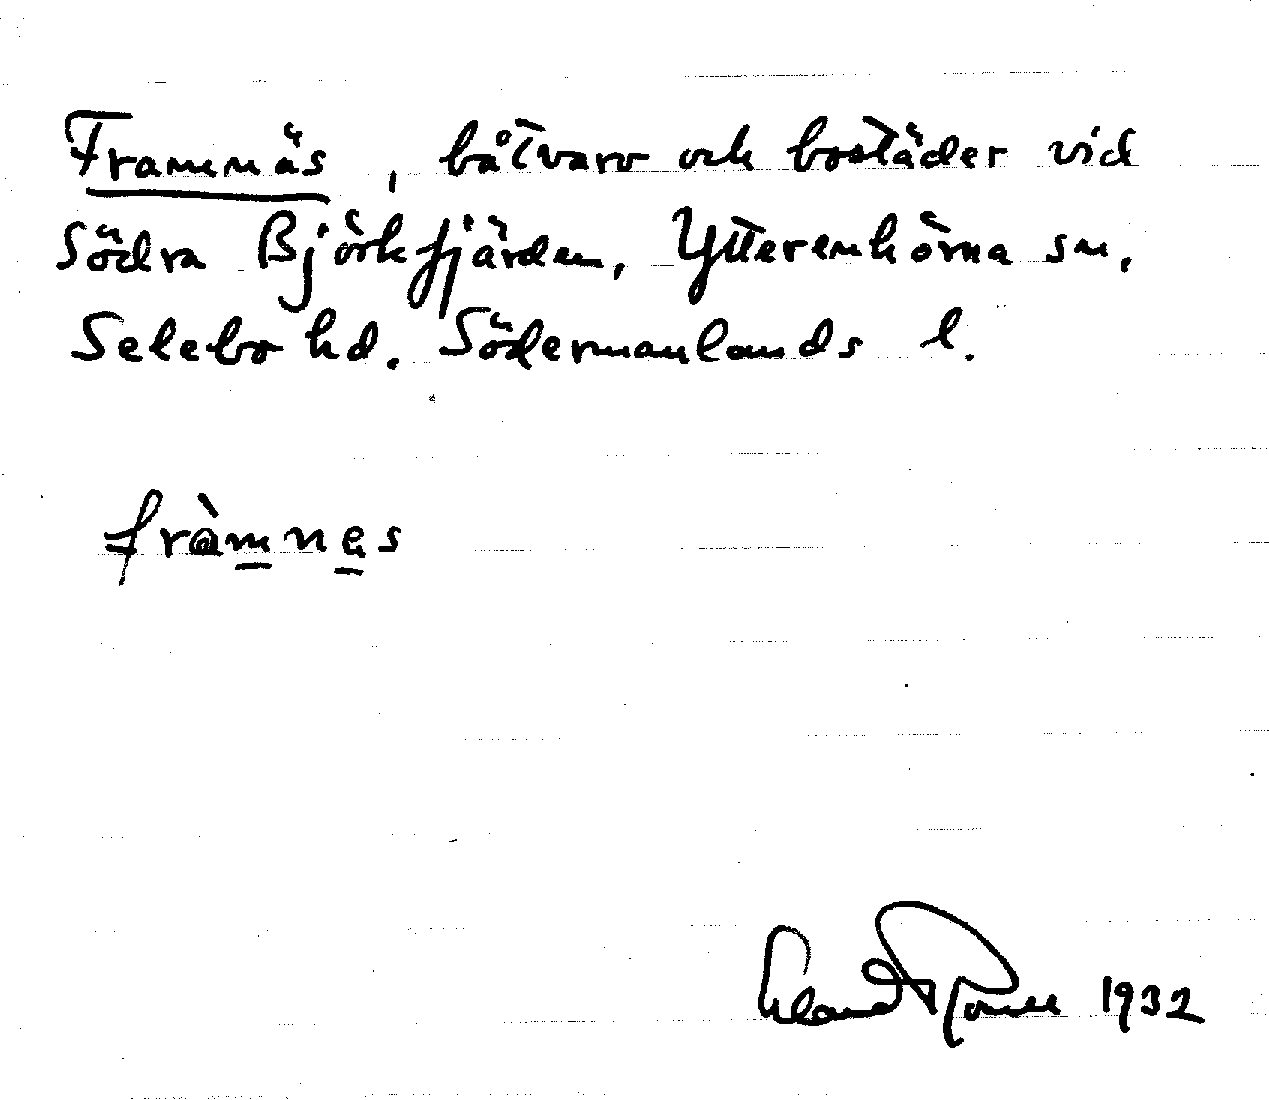 Framnäs, båtvarv och bostäder vid
Södra Björkfjärden, Ytterenhörna sn,
Selebo hd. Södermanlands l.
fràmnes
1932